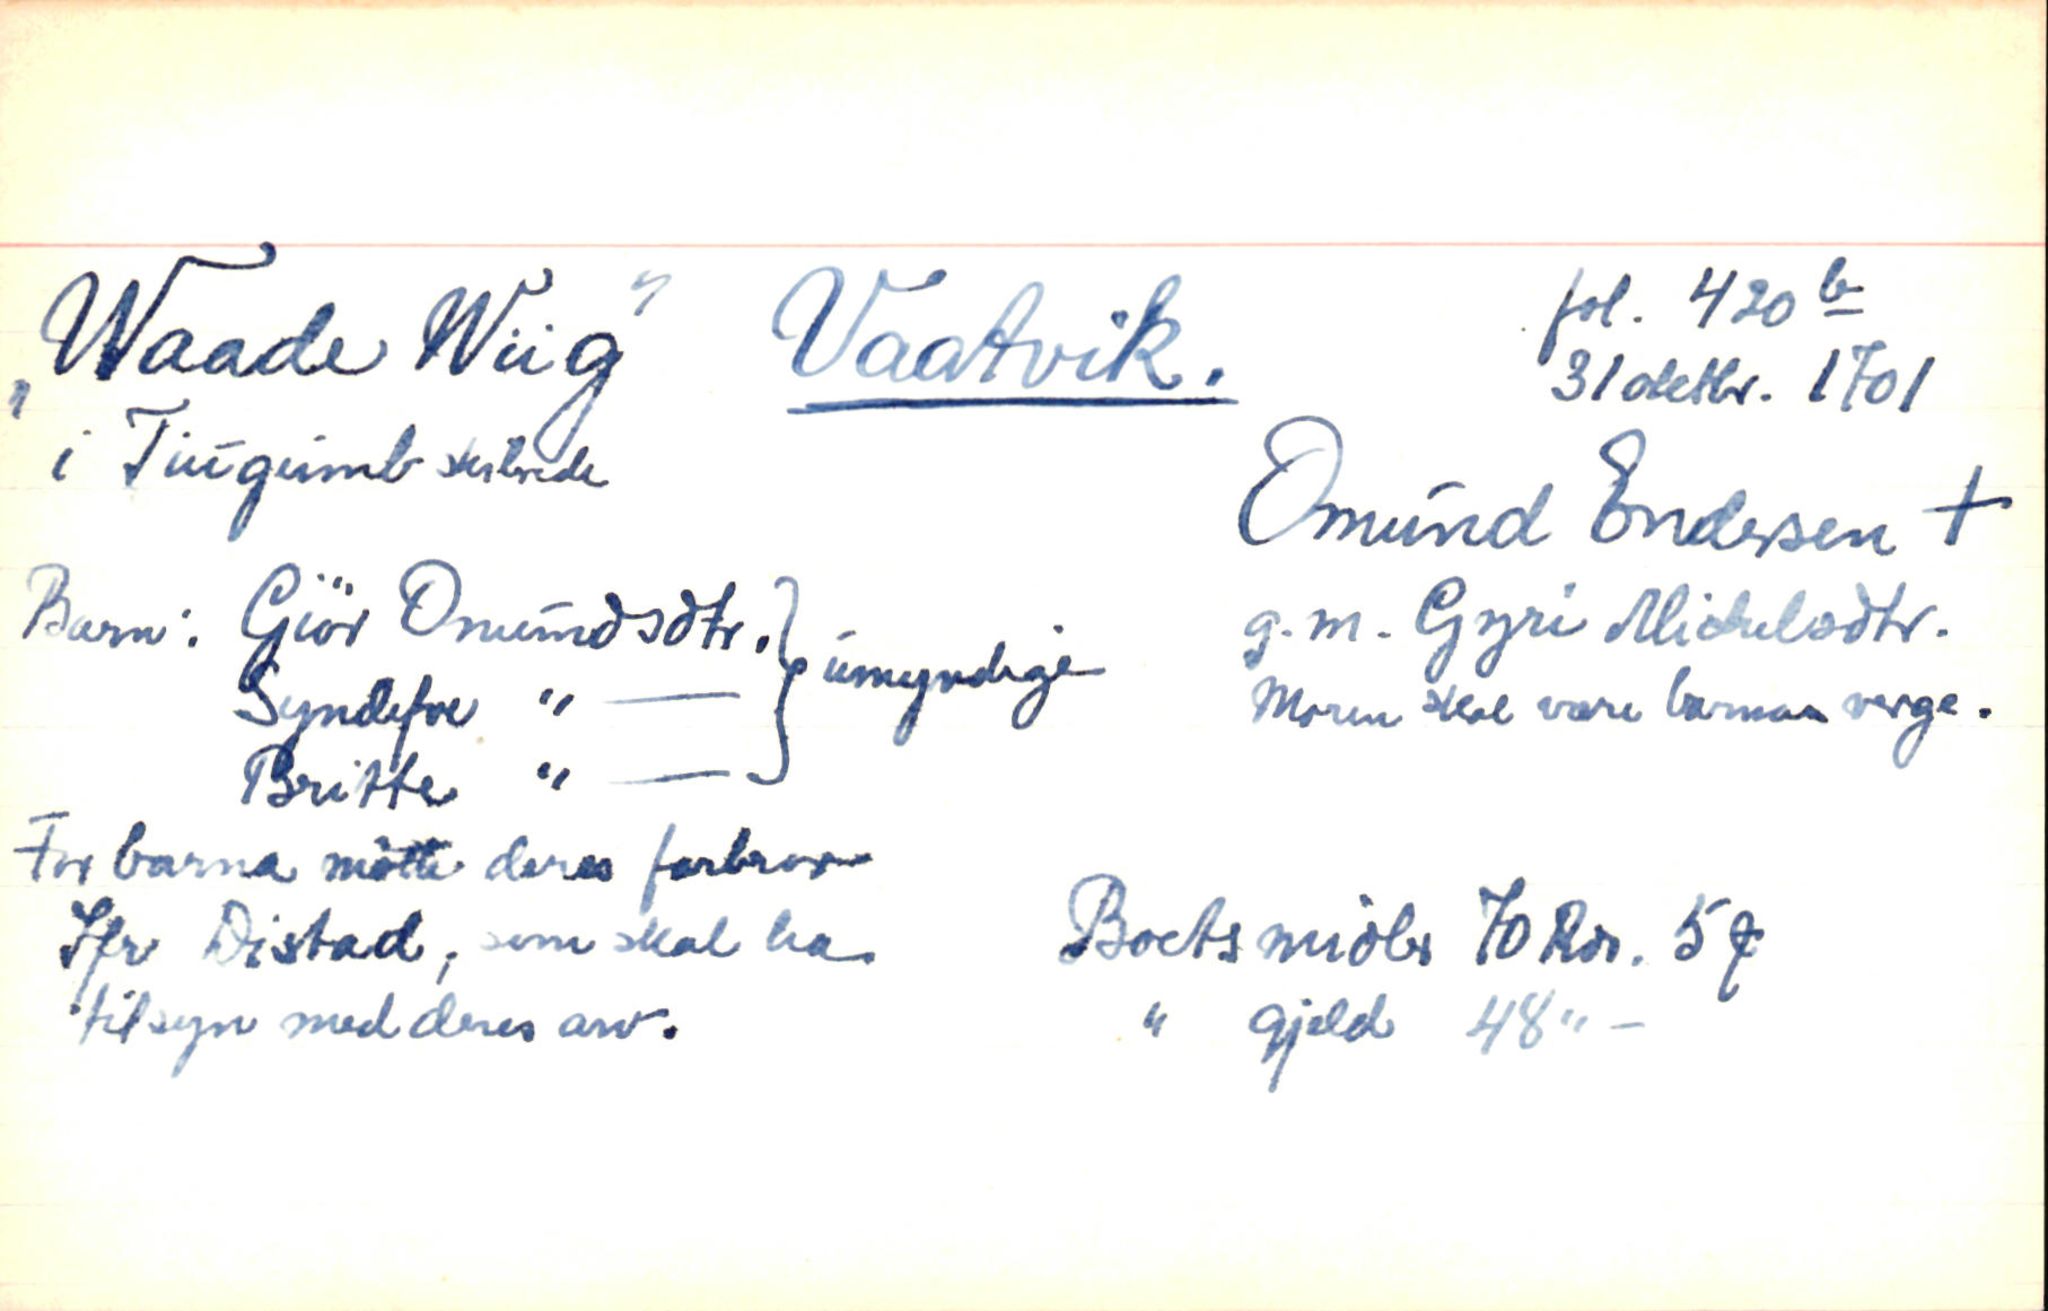 "Waade Wiig" Vaatvik. fol. 420 b
31 oktbr. 1701
i Tiugumb skibrede
Omund Endersen +
Barn: Giör Omundsdtr. } umyndige
g.m. Gyri Michelsdtr.
Syndefoe " —
Moren skal være barnas verge.
Britte " —
For barna mötte deres farbror
Ifr Distad, som skal ha
Boets midler 70 Rdr. 5
tilsyn med deres arv.
" gjeld 48 " –